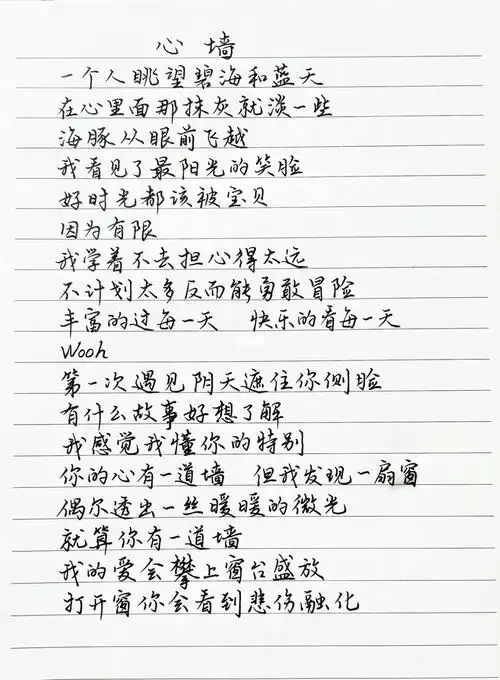 心墙
一个人眺望碧海和蓝天
在心里面那抹灰就淡一些
海豚从眼前飞越
我看见了最阳光的笑脸
好时光都该被宝贝
因为有限
我学着不去担心得太远
不计划太多反而能勇敢冒险
丰富的过每一天 快乐的看每一天
Wooh
第一次遇见阴天遮住你侧脸
有什么故事好想了解
我感觉我懂你的特别
你的心有一道墙 但我发现一扇窗
偶尔透出一丝暖暖的微光
就算你有一道墙
我的爱会攀上窗台盛放
打开窗你会看到悲伤融化